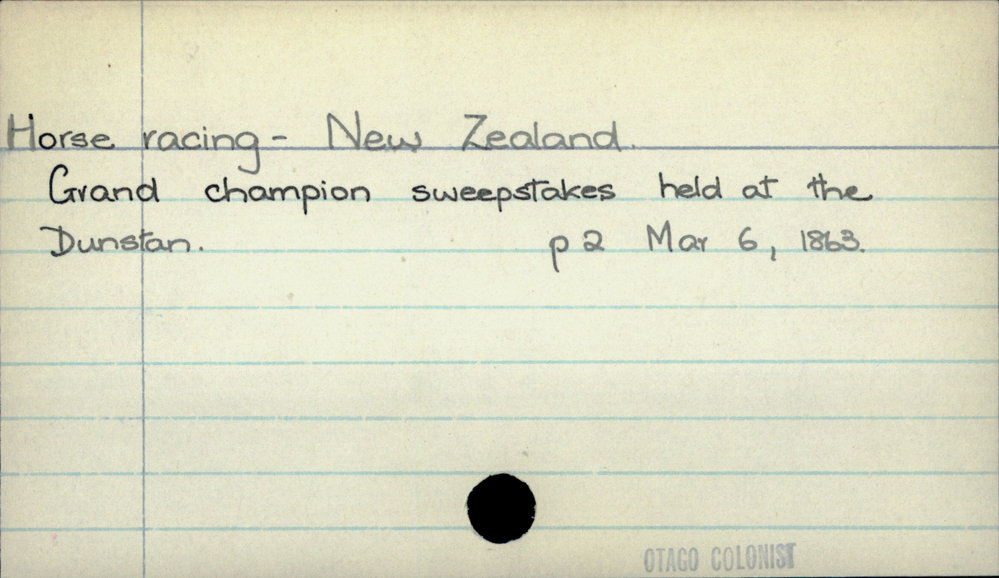 Horse racing - New Zealand.
Grand champion sweepstakes held at the
Dunstan. p 2 Mar 6, 1863.
OTAGO COLONIST